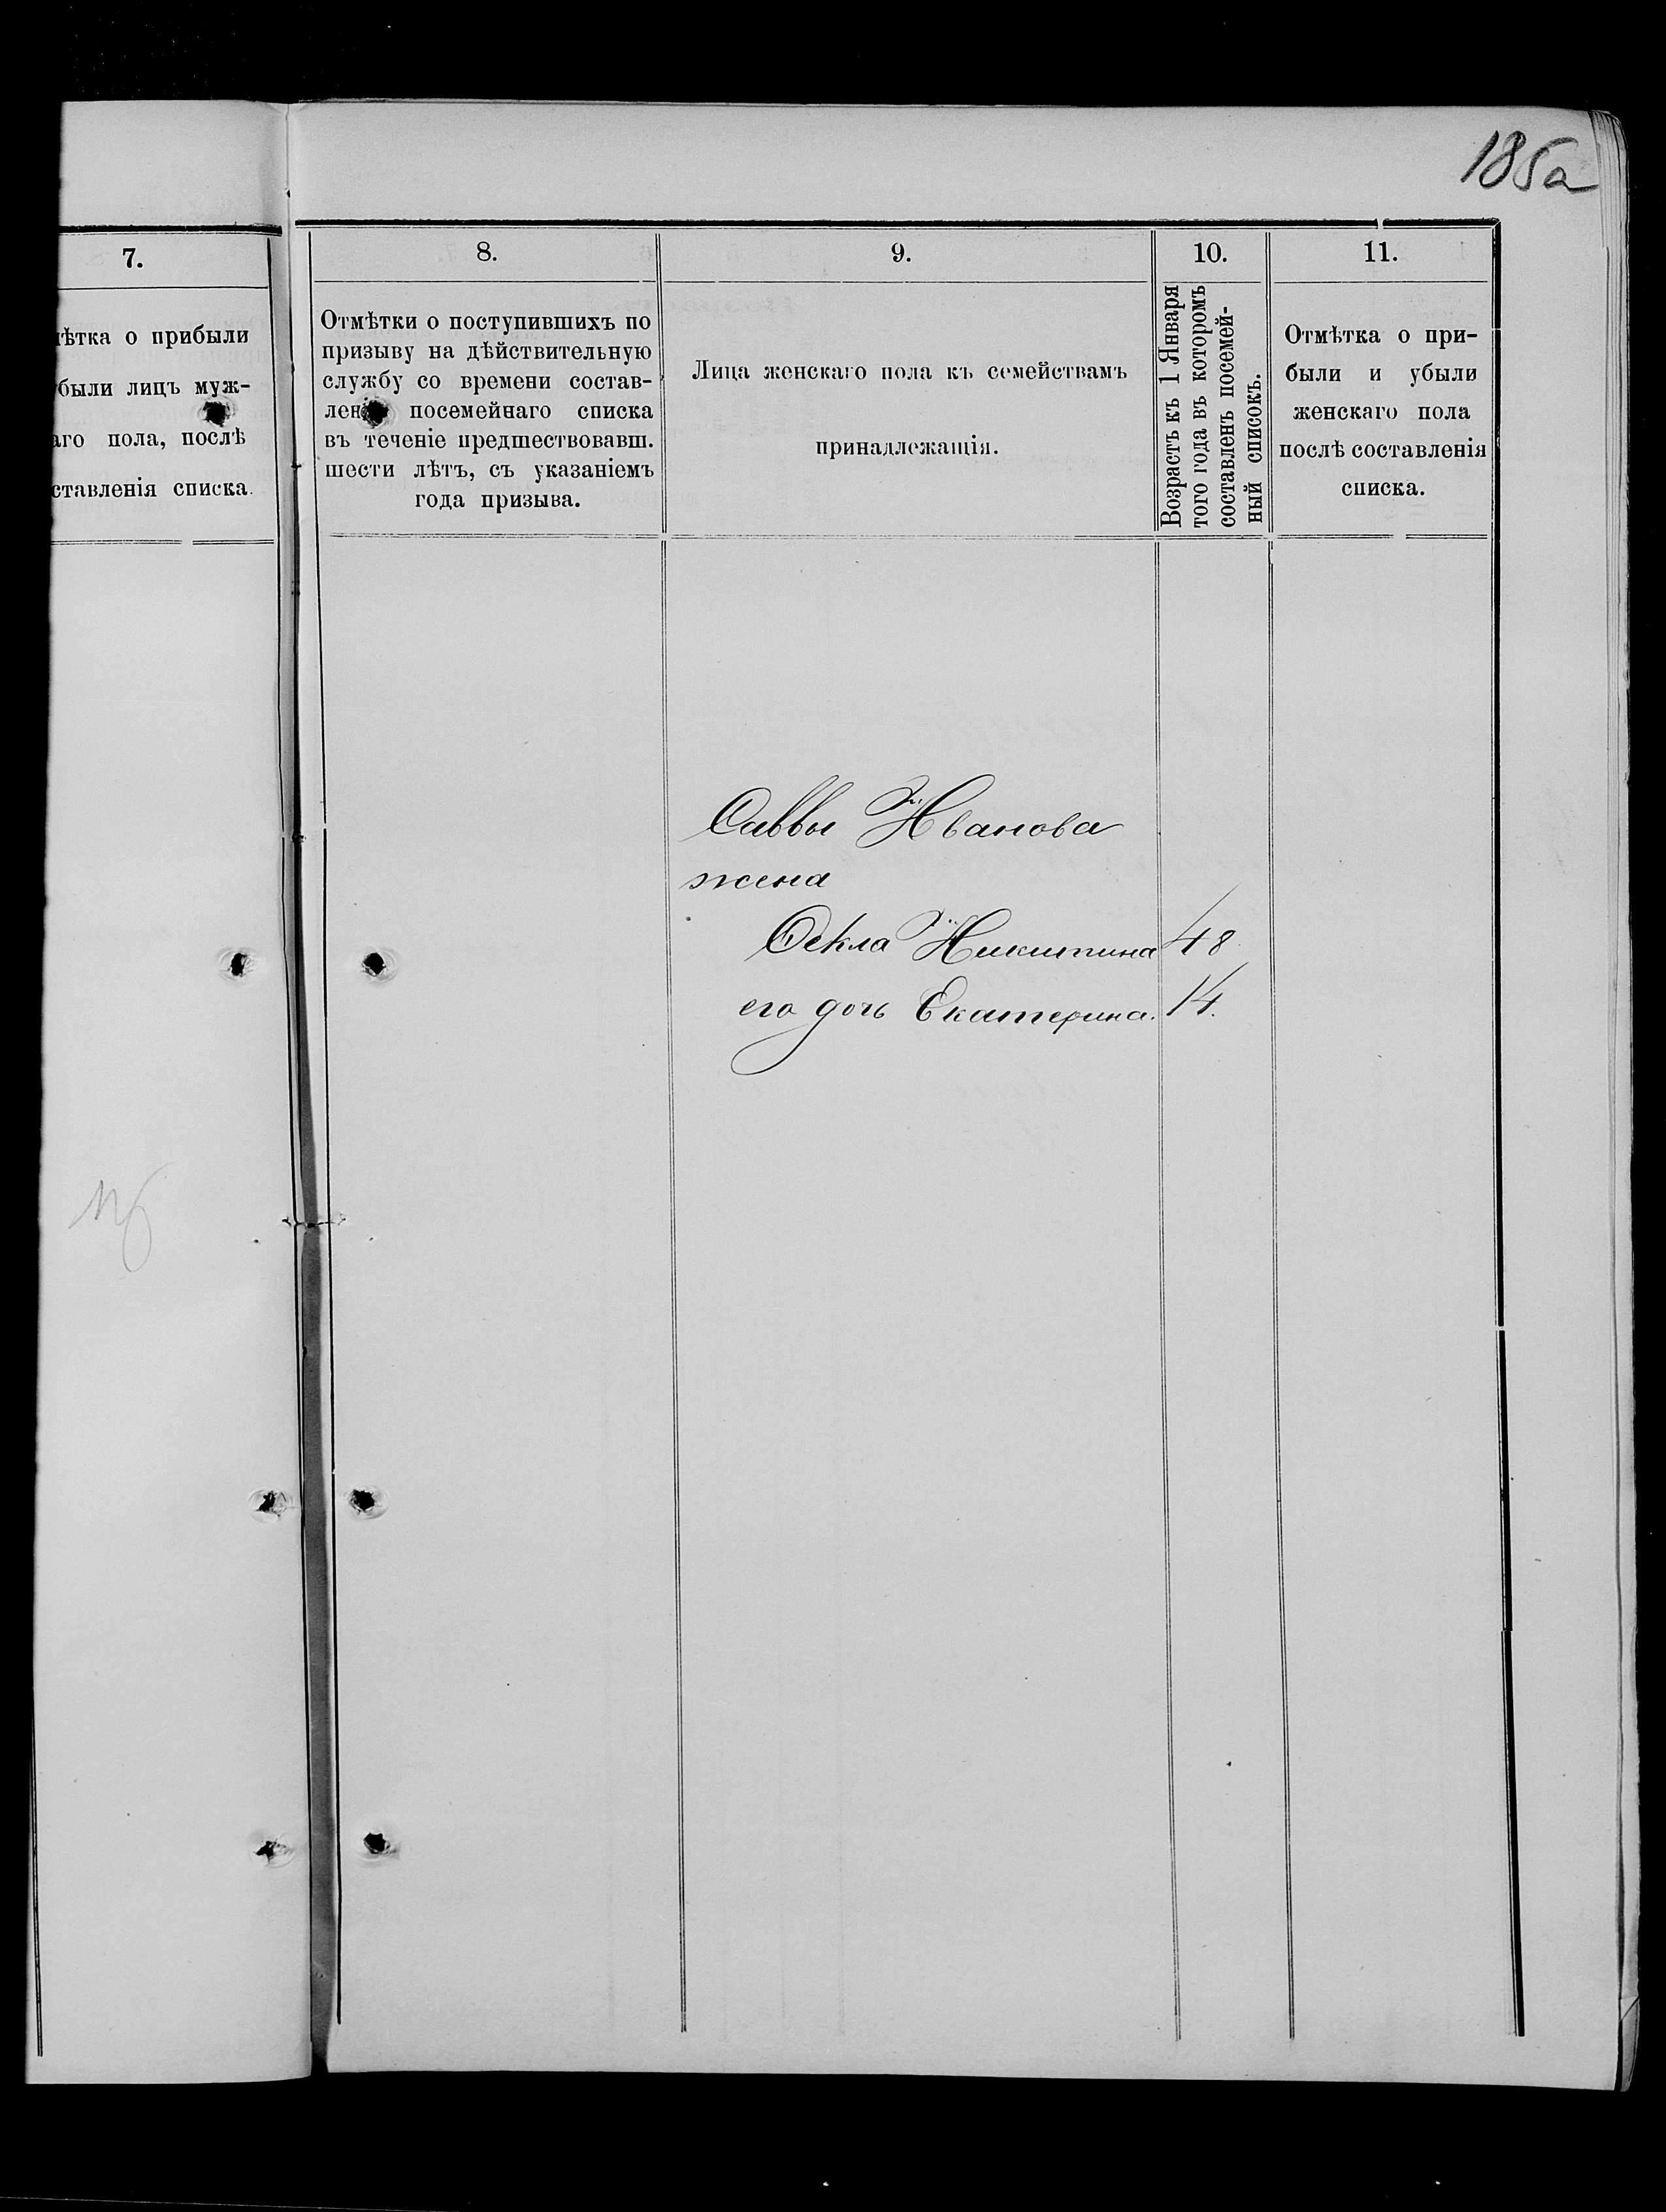 185а
7.
ѣтка о прибыли
были лицъ муж-
аго пола, послѣ
ставленія списка.
8.
Отмѣтки о поступившихъ по
призыву на дѣйствительную
службу со времени состав-
лені посемейнаго списка
въ теченіе предшествовавш.
шести лѣтъ, съ указаніемъ
года призыва.
9.
Лица женскаго пола къ семействамъ
принадлежащія.
10.
Возрастъ къ 1 Января
того года въ которомъ
составленъ посемей-
ный списокъ.
11.
Отмѣтка о при-
были и убыли
женскаго пола
послѣ составленія
списка.
Саввы Иванова
жена
Ѳекла Никитина 48
его дочь Екатерина. 14.